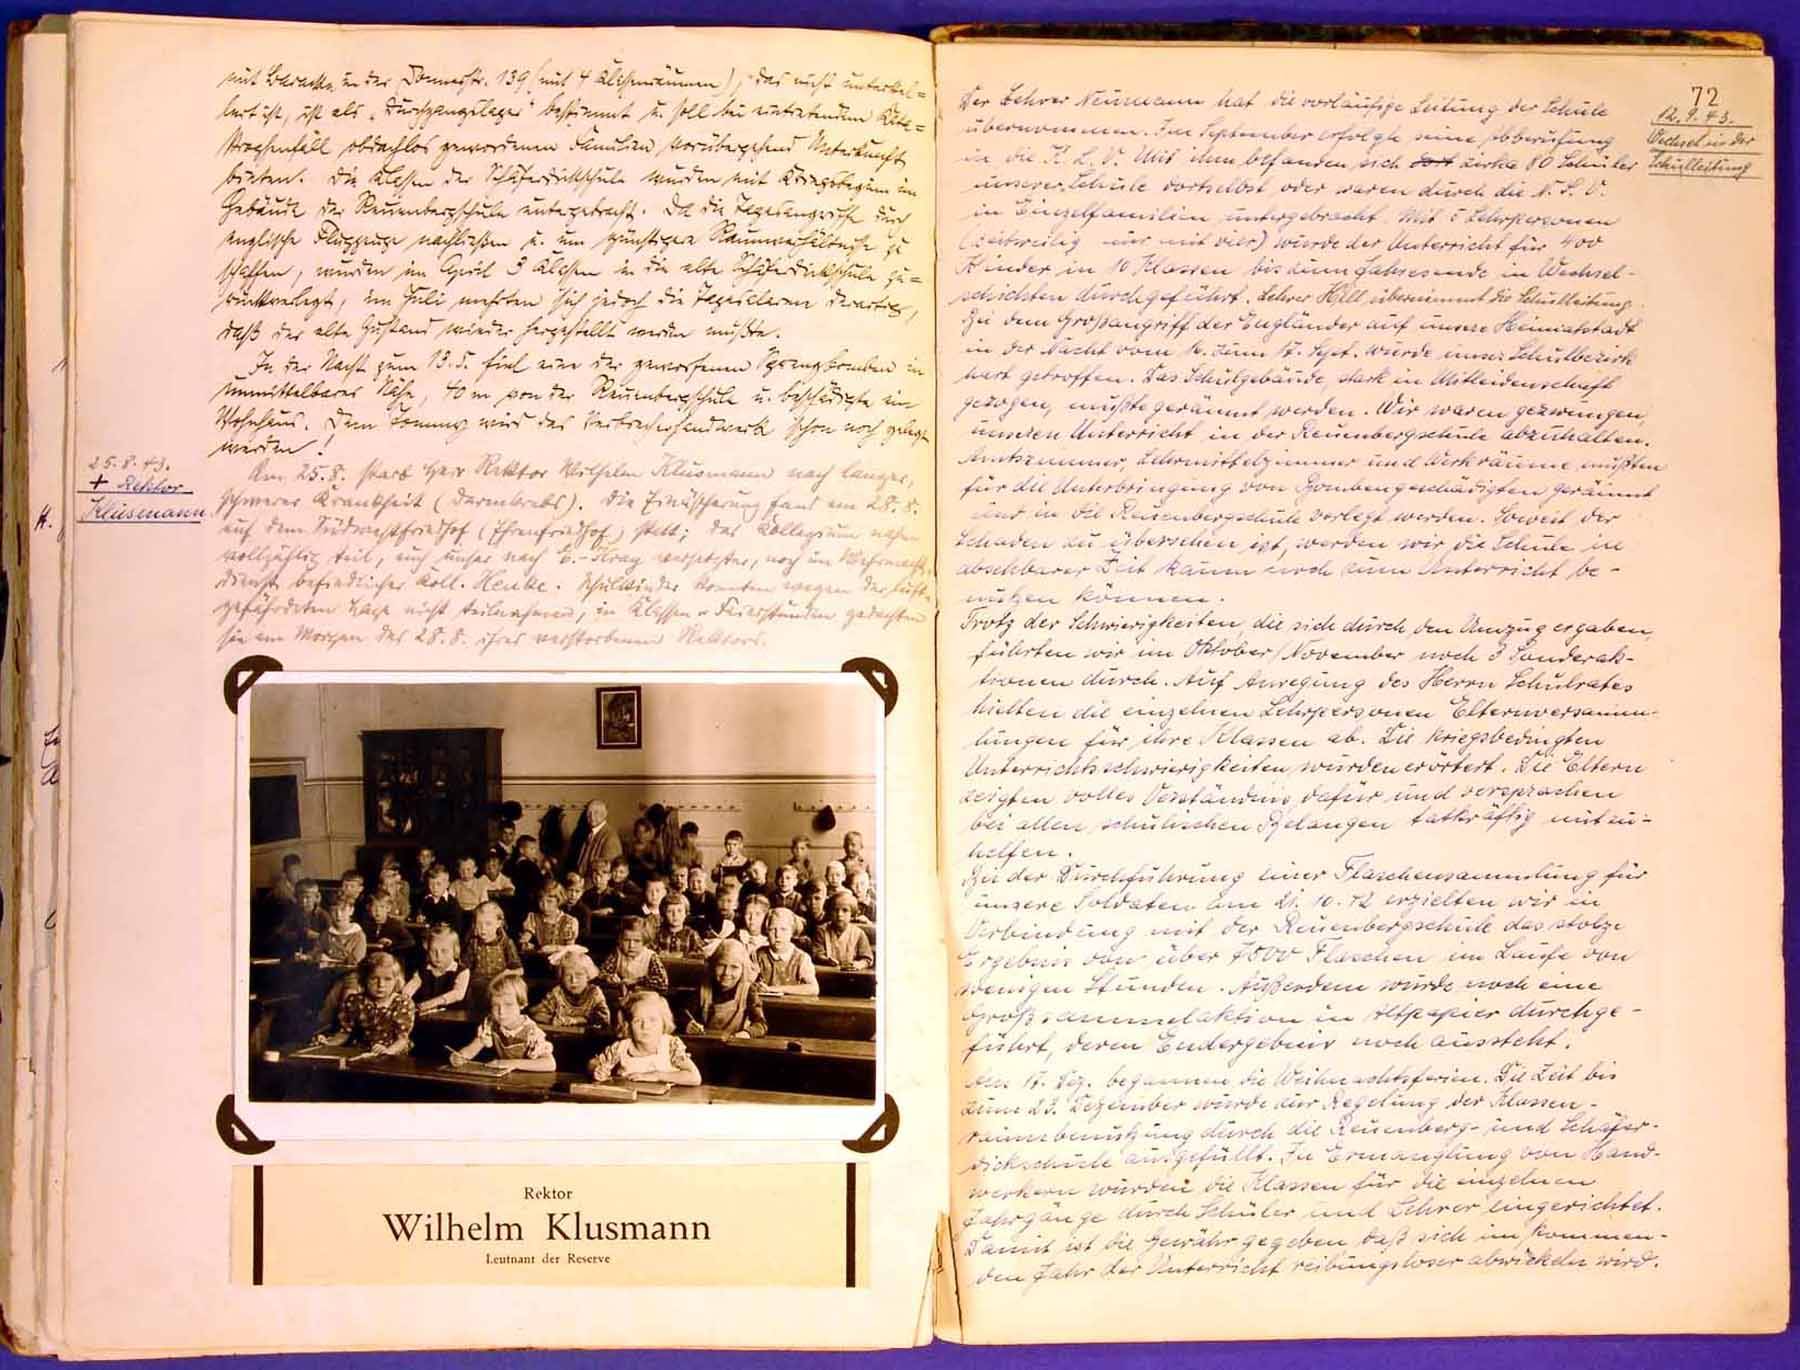 mit Baracke in der Donnerstr. 139 (mit 4 Klassenräumen), das nicht unterkel=
lert ist, ist als „Durchgangslager" bestimmt u. soll bei eintretendem Kata=
strophenfall obdachlos gewordenen Familien vorübergehend Unterkunft
bieten. Die Klassen der Schäferdickschule wurden mit Kriegsbeginn im
Gebäude der Reuenbergschule untergebracht. Da die Tagesangriffe durch
englische Flugzeuge nachließen u. um günstigere Raumverhältnisse zu
schaffen, wurden im April 3 Klassen in die alte Schäferdickschule zu=
rückverlegt, im Juli mehrten sich jedoch die Tagesalarme derartig,
daß der alte Zustand wieder hergestellt werden mußte.
In der Nacht zum 13.5. fiel eine der geworfenen Sprengbomben in
unmittelbarer Nähe, 40 m von der Reuenbergschule u. beschädigte ein
Wohnhaus. Dem Tommy wird das Verbrecherhandwerk schon noch gelegt
werden!
25.8.43.
+ Rektor
Klusmann
Am 25.8. starb Herr Rektor Wilhelm Klusmann nach langer,
schwerer Krankheit (Darmkrebs). Die Einäscherung fand am 28.8.
auf dem Südwestfriedhof (Ehrenfriedhof) statt; das Kollegium nahm
vollzählig teil, auch unser nach E.-Kray versetzter, noch im Wehrmacht
dienst befindlicher Koll. Henke. Schulkinder konnten wegen der luft=
gefährdeten Lage nicht teilnehmen, in Klassen-Feierstunden gedachten
sie am Morgen des 28.8. ihres verstorbenen Rektors.
Rektor
Wilhelm Klusmann
Leutnant der Reserve
72
12.9.43.
Wechsel in der
Schulleitung
Der Lehrer Neumann hat die vorläufige Leitung der Schule
übernommen. Im September erfolgte seine Abberufung
in die K.L.V. Mit ihm befanden sich zirka 80 Schüler
unserer Schule dortselbst oder waren durch die N.S.V.
in Einzelfamilien untergebracht. Mit 5 Lehrpersonen
(zeitweilig nur mit vier) wurde der Unterricht für 400
Kinder in 10 Klassen bis zum Jahresende in Wechsel-
schichten durchgeführt. Lehrer Hill übernimmt die Schulleitung.
Bei dem Großangriff der Engländer auf unsere Heimatstadt
in der Nacht vom 16. zum 17. Sept. wurde unser Schulbezirk
hart getroffen. Das Schulgebäude, stark in Mitleidenschaft
gezogen, mußte geräumt werden. Wir waren gezwungen,
unseren Unterricht in der Reuenbergschule abzuhalten.
Amtszimmer, Lehrmittelzimmer und Werkräume mußten
für die Unterbringung von Bombengeschädigten geräumt
und in die Reuenbergschule verlegt werden. Soweit der
Schaden zu übersehen ist, werden wir die Schule in
absehbarer Zeit kaum noch zum Unterricht be-
nutzen können.
Trotz der Schwierigkeiten, die sich durch den Umzug ergaben,
führten wir im Oktober/November noch 3 Sonderak-
tionen durch. Auf Anregung des Herrn Schulrates
hielten die einzelnen Lehrpersonen Elternversamm-
lungen für ihre Klassen ab. Die kriegsbedingten
Unterrichtsschwierigkeiten wurden erörtert. Die Eltern
zeigten volles Verständnis dafür und versprachen
bei allen schulischen Belangen tatkräftig mitzu-
helfen.
Bei der Durchführung einer Flaschensammlung für
unsere Soldaten am 21.10.42 erzielten wir in
Verbindung mit der Reuenbergschule das stolze
Ergebnis von über 7800 Flaschen im Laufe von
wenigen Stunden. Außerdem wurde noch eine
Großsammelaktion in Altpapier durchge-
führt, deren Endergebnis noch aussteht.
Am 17. Dez. begannen die Weihnachtsferien. Die Zeit bis
zum 23. Dezember wurde zur Regelung der Klassen-
raumbenutzung durch die Reuenberg- und Schäfer-
dickschule ausgefüllt. In Ermanglung von Hand-
werkern wurden die Klassen für die einzelnen
Jahrgänge durch Schüler und Lehrer eingerichtet.
Damit ist die Gewähr gegeben, daß sich im kommen-
den Jahr der Unterricht reibungsloser abwickeln wird.